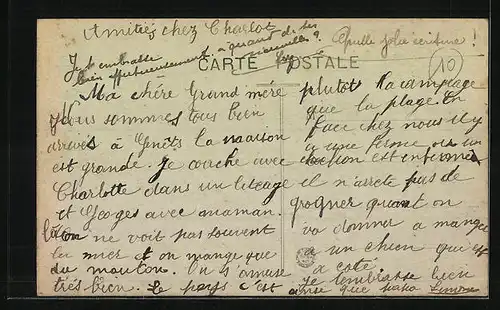 Amitiés chez Charlot
J'ai embrasse
bien affectueusement. à quand de ses
nouvelles ?
Quelle jolie écriture !
10
CARTE POSTALE
Ma chère Grand mère
Nous sommes tous bien
arrivés à Genêts la maison
est grande. Je couche avec
Charlotte dans un lit cage
et Georges avec maman.
on ne voit pas souvent
la mer et on mange que
du mouton. On s'amuse
très bien. Le pays c'est
plutôt la campagne
que la plage. En
face chez nous il y
a une ferme ou un
cochon est enfermé
il n'arrête pas de
grogner quant on
va donner a manger
a un chien qui est
a coté.
Je t'embrasse bien
ainsi que papa Simone